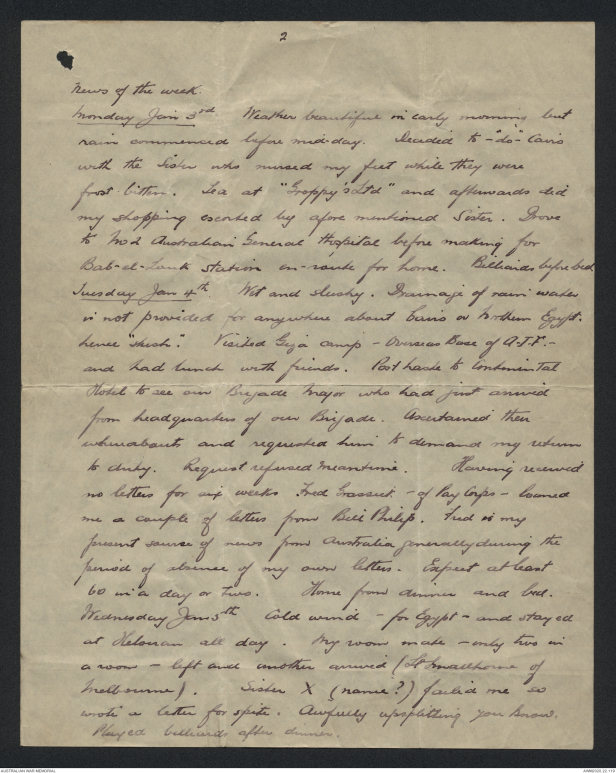 2
News of the week.
Monday Jan 3rd Weather beautiful in early morning but
rain commenced before mid-day. Decided to - "do" Cairo
with the Sister who nursed my feet while they were
frost bitten. Tea at "Groppy's Ltd" and afterwards did
my shopping escorted by afore mentioned Sister. Drove
to No 2 Australian General Hospital before making for
Bab-el-Louk station en-route for home. Billiards before bed.
Tuesday Jan 4th Wet and slushy. Drainage of rain water
is not provided for anywhere about Cairo or Northern Egypt.
hence "slush". Visited Giza camp - Overseas Base of A.I.F. -
and had lunch with friends. Post haste to Continental
Hotel to see our Brigade Major who had just arrived
from headquarters of our Brigade. Ascertained their
whereabouts and requested him to demand my return
to duty. Request refused meantime. Having received
no letters for six weeks Fred Grassick - of Pay Corps - loaned
me a couple of letters from Bill Philip. Fred is my
present source of news from Australia generally during the
period of absence of my own letters. Expect at least
60 in a day or two. Home from dinner and bed.
Wednesday Jan 5th Cold wind - for Egypt - and stayed
at Helouan all day. My room mate - only two in
a room - left and another arrived (Lt Smallhorne of
Melbourne). Sister X (name?) failed me so
wrote a letter for spite. Awfully upsplitting you know.
Played billiards after dinner.
AUSTRALIAN WAR MEMORIAL